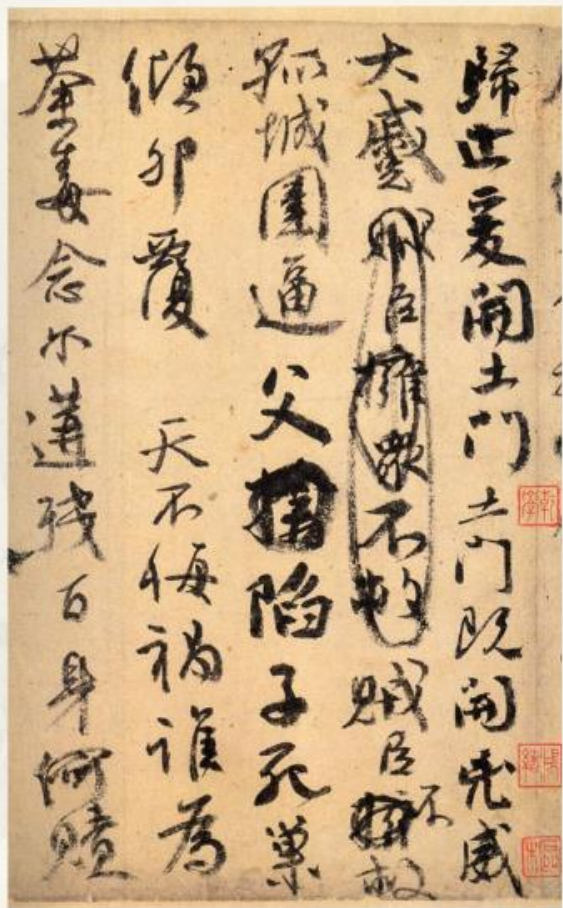 歸止爰開土門土門既開兇威
大蹙賊臣擁衆不救賊臣不救
孤城圍逼父陷子死巢
傾卵覆 天不悔禍誰為
荼毒念尔遘殘百身何贖